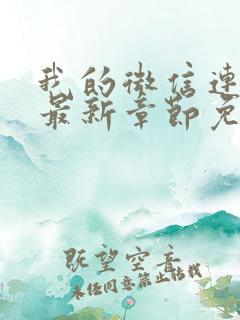 我的微信连
最新章节免
既望空音
未经同意禁止转载